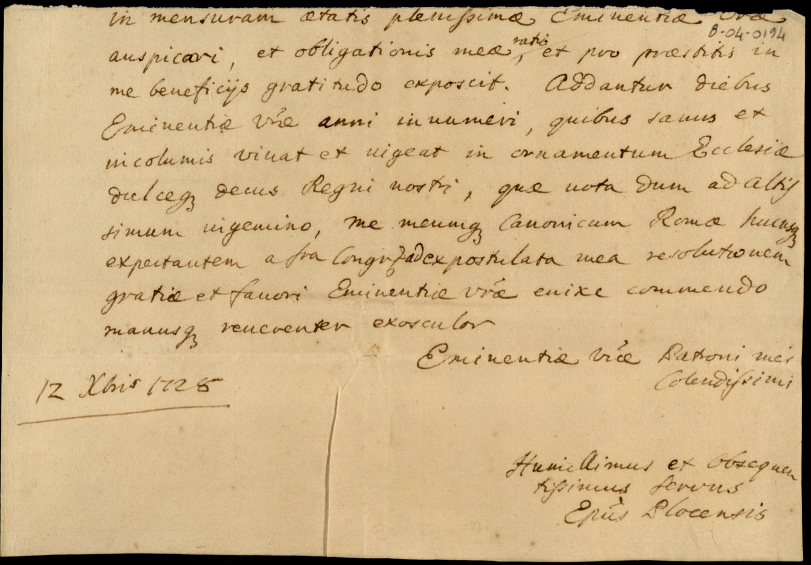 in mensuram ætatis plenissimæ Eminentiæ Vræ
8-04-0194
auspicari, et obligationis meæ ratio, et pro præstitis in
me beneficijs gratitudo exposcit. Addantur diebus
Eminentiæ Vræ anni innumeri, quibus sanus et
incolumis vivat et vigeat in ornamentum Ecclesiæ
dulceq decus Regni nostri, quæ vota dum ad Altis
simum ingemino, me meumq Canonicum Romæ hucusq
expectantem a sra Congr ad expostulata mea resolutionem
gratiæ et favori Eminentiæ Vræ enixe commendo
manusq reverenter exosculor
Eminentiæ Vræ Patroni mei
Colendissimi
12 Xbris 1728
Humillimus et obsequen
tissimus servus
Epus Plocensis